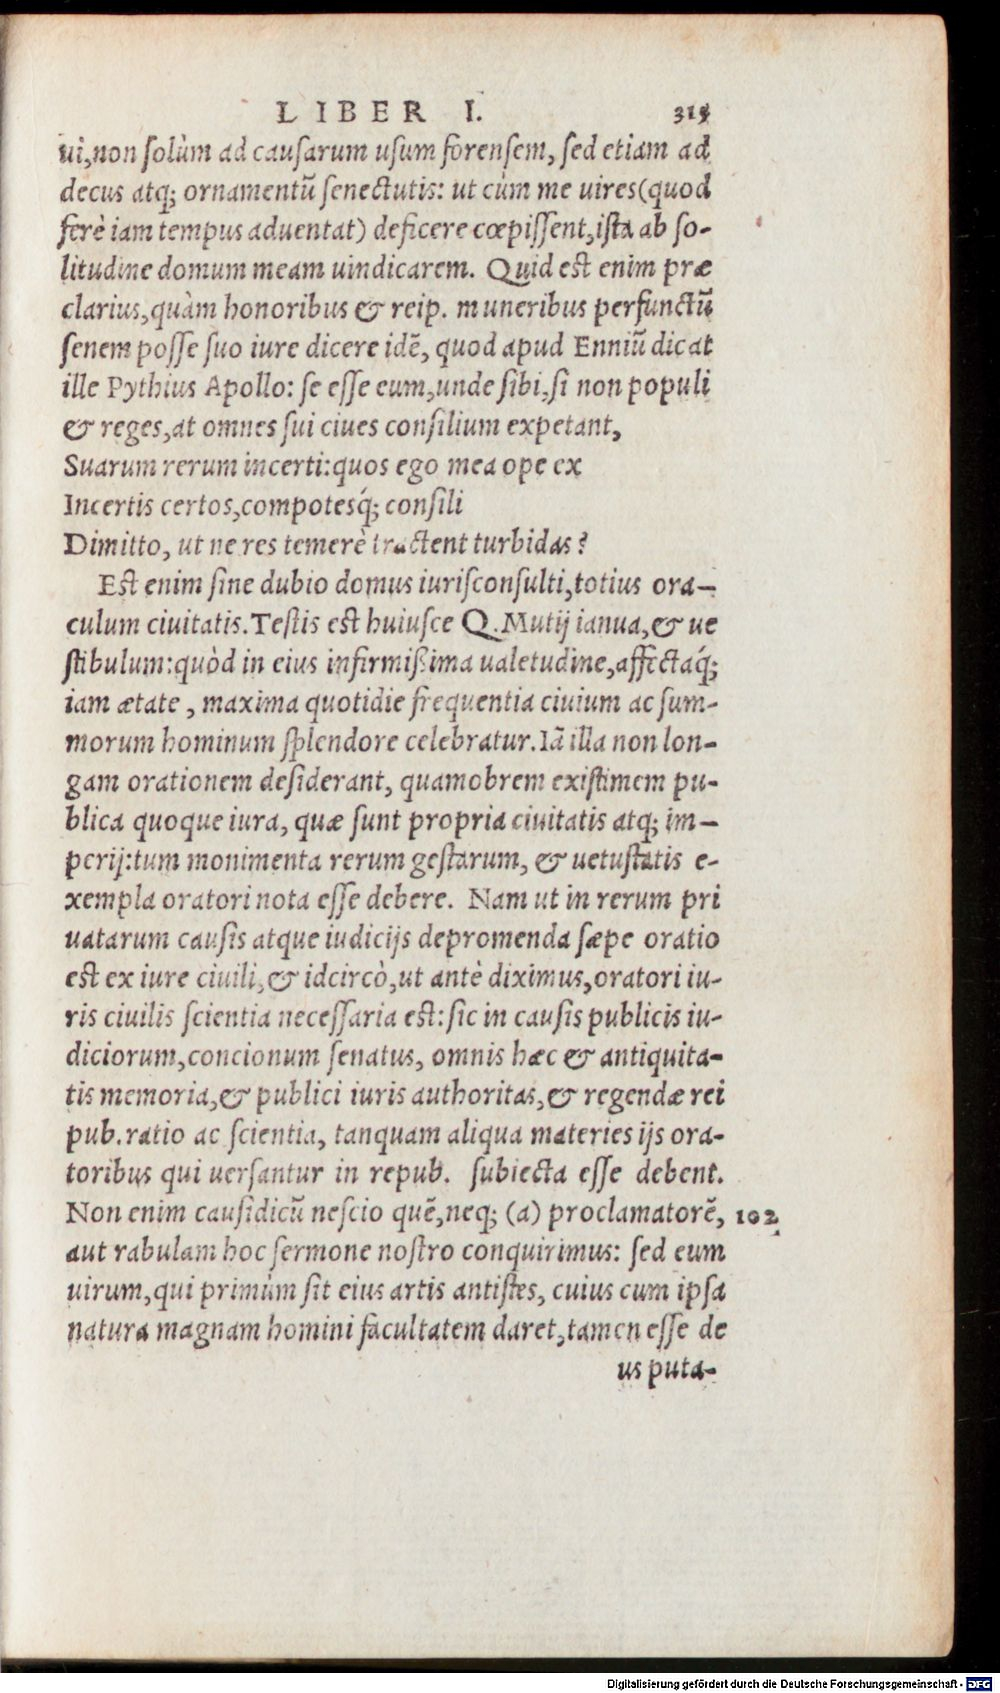 LIBER I. 315
ui, non ſolùm ad cauſarum uſum forenſem, ſed etiam ad
decus atq; ornamentũ ſenectutis: ut cùm me uires (quod
ferè iam tempus aduentat) deficere cœpiſſent, iſta ab ſo-
litudine domum meam uindicarem. Quid est enim præ
clarius, quàm honoribus & reip. muneribus perfunctũ
ſenem poſſe ſuo iure dicere idẽ, quod apud Enniũ dicat
ille Pythius Apollo: ſe eſſe eum, unde ſibi, ſi non populi
& reges, at omnes ſui ciues conſilium expetant,
Suarum rerum incerti: quos ego mea ope ex
Incertis certos, compotesq́; conſili
Dimitto, ut ne res temerè tractent turbidas?
Est enim ſine dubio domus iuriſconſulti, totius ora-
culum ciuitatis. Teſtis est huiuſce Q. Mutij ianua, & ue
ſtibulum: quòd in eius infirmißima ualetudine, affectaq́;
iam ætate, maxima quotidie frequentia ciuium ac ſum-
morum hominum ſplendore celebratur. Iã illa non lon-
gam orationem deſiderant, quamobrem exiſtimem pu-
blica quoque iura, quæ ſunt propria ciuitatis atq; im-
perij: tum monimenta rerum geſtarum, & uetuſtatis e-
xempla oratori nota eſſe debere. Nam ut in rerum pri
uatarum cauſis atque iudicijs depromenda ſæpe oratio
est ex iure ciuili, & idcircò, ut antè diximus, oratori iu-
ris ciuilis ſcientia neceſſaria est: ſic in cauſis publicis iu-
diciorum, concionum ſenatus, omnis hæc & antiquita-
tis memoria, & publici iuris authoritas, & regendæ rei
pub. ratio ac ſcientia, tanquam aliqua materies ijs ora-
toribus qui uerſantur in repub. ſubiecta eſſe debent.
Non enim cauſidicũ neſcio quẽ, neq; (a) proclamatorẽ, 102
aut rabulam hoc ſermone noſtro conquirimus: ſed eum
uirum, qui primùm ſit eius artis antiſtes, cuius cum ipſa
natura magnam homini facultatem daret, tamen eſſe de
us puta-
Digitalisierung gefördert durch die Deutsche Forschungsgemeinschaft - DFG